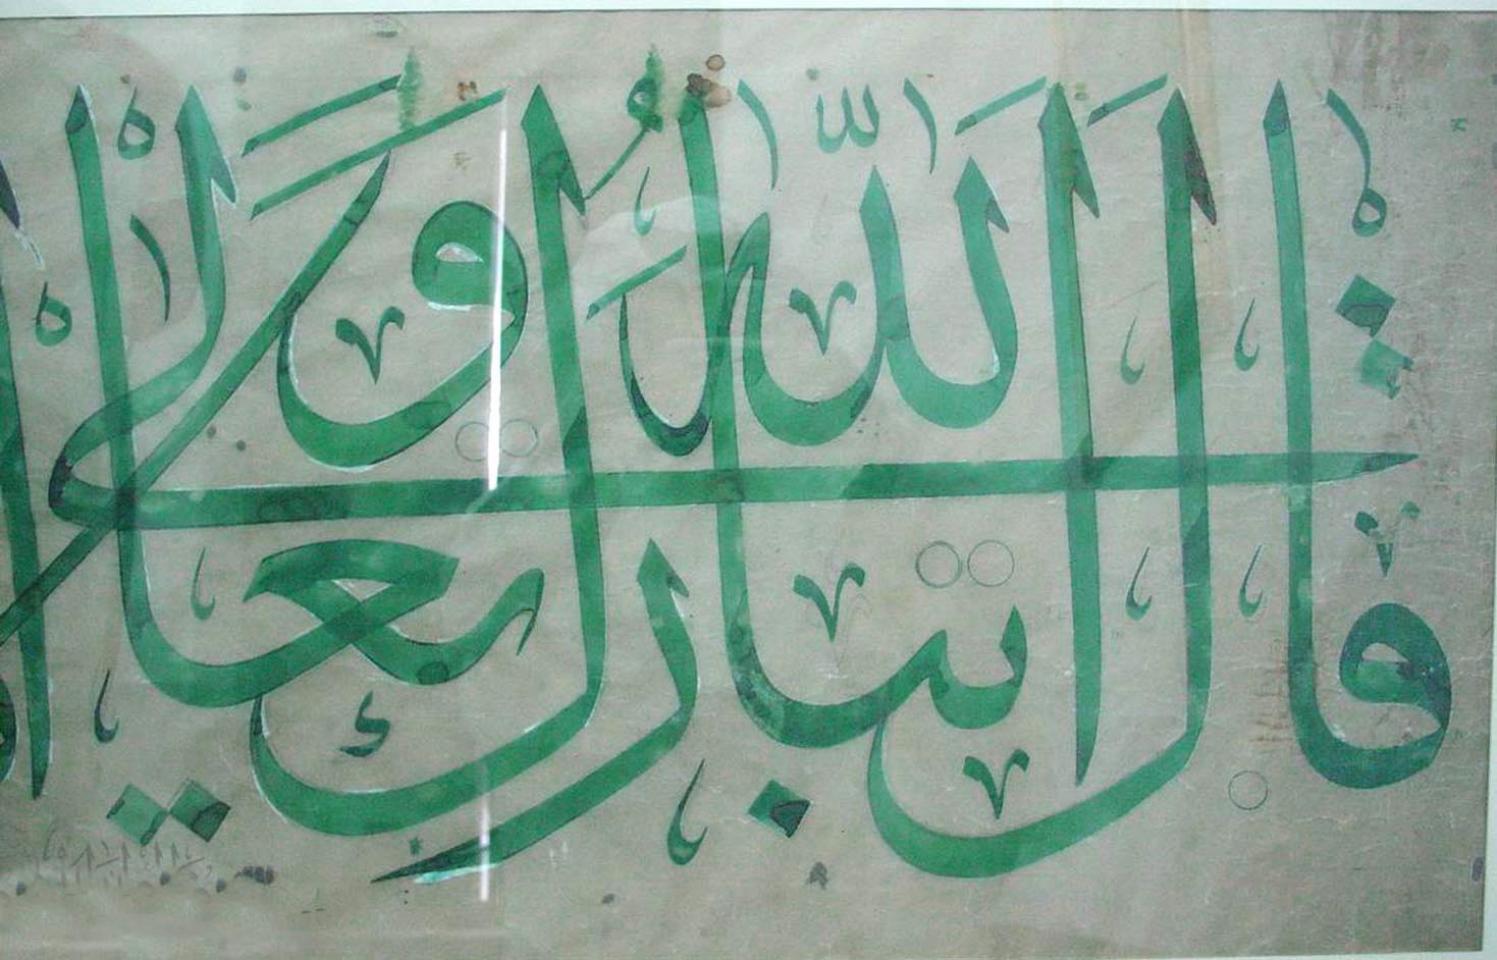 قال الله تبارك وتعالى